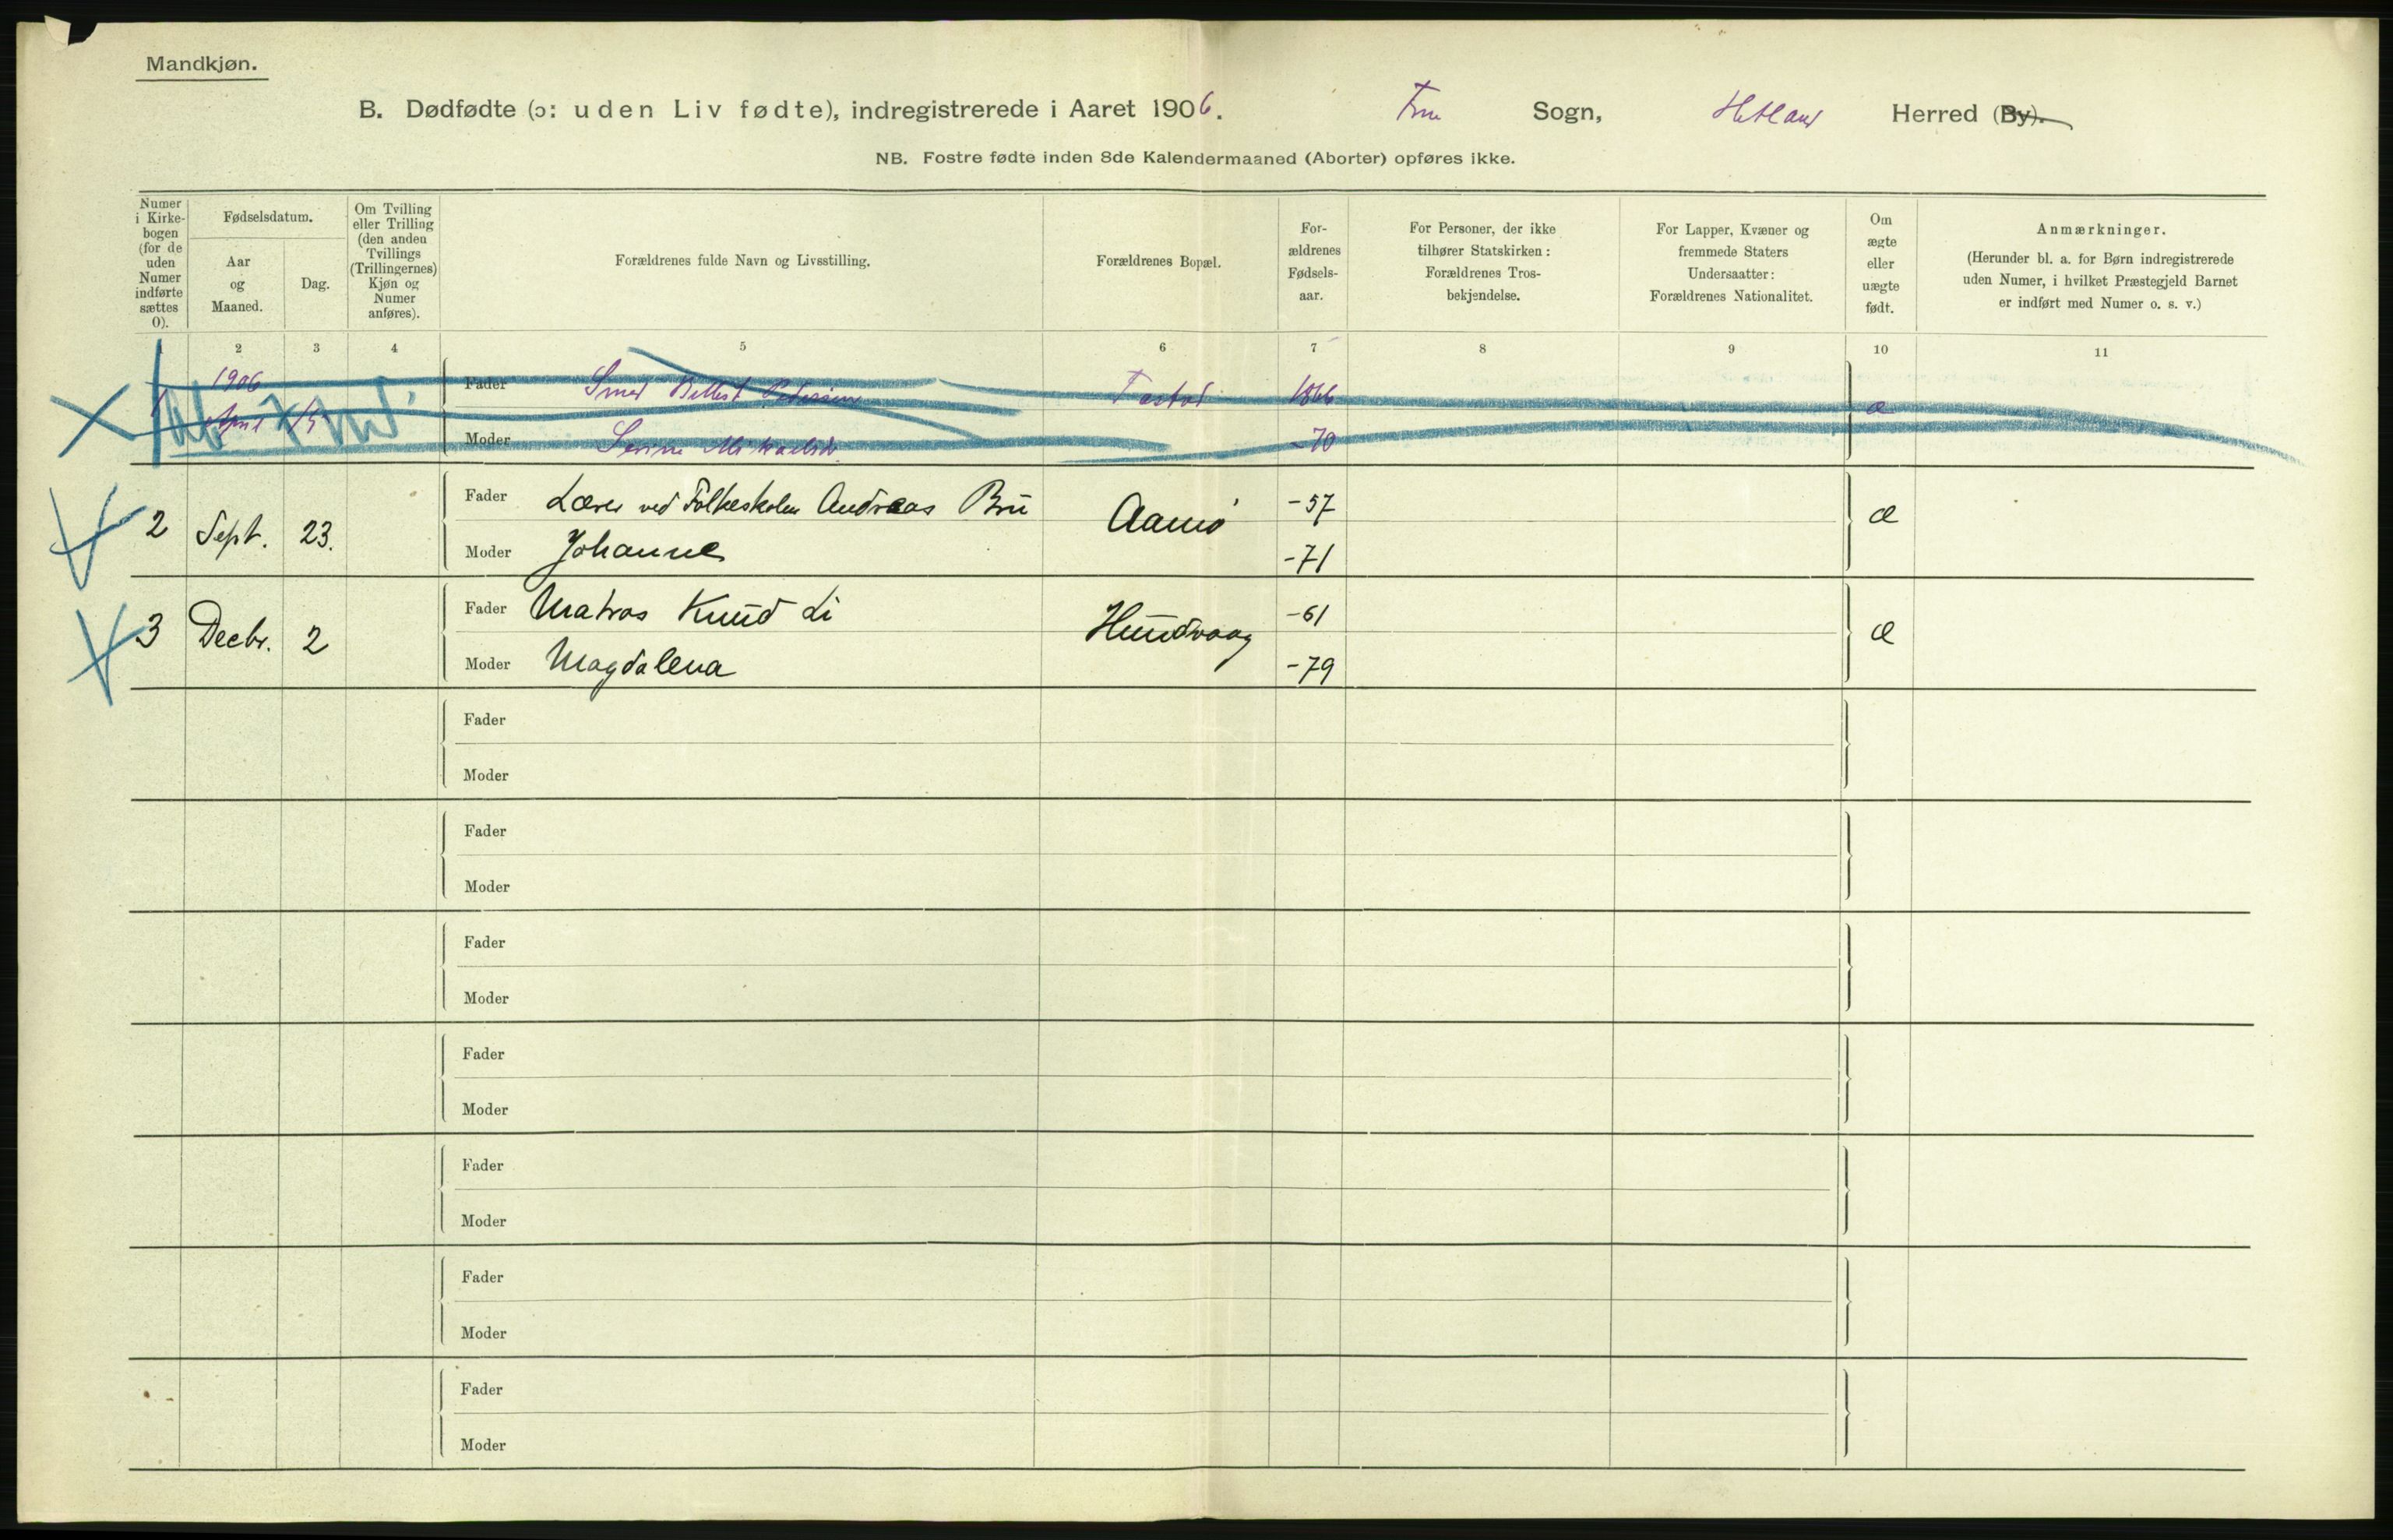 Mandkjøn.
B. Dødfødte (ɔ: uden Liv fødte), indregistrerede i Aaret 1906. Frue Sogn, Hetland Herred (By).
NB. Fostre fødte inden 8de Kalendermaaned (Aborter) opføres ikke.
Numer i Kirkebogen (for de uden Numer indførte sættes 0).
Fødselsdatum.
Aar og Maaned.
Dag.
Om Tvilling eller Trilling (den anden Tvillings (Trillingernes) Kjøn og Numer anføres).
Forældrenes fulde Navn og Livsstilling.
Forældrenes Bopæl.
Forældrenes Fødselsaar.
For Personer, der ikke tilhører Statskirken: Forældrenes Trosbekjendelse.
For Lapper, Kvæner og fremmede Staters Undersaatter: Forældrenes Nationalitet.
Om ægte eller uægte født.
Anmærkninger.
(Herunder bl. a. for Børn indregistrerede uden Numer, i hvilket Præstegjeld Barnet er indført med Numer o. s. v.)
2 3 4 5 6 7 8 9 10 11
1906
Fader Smed Pedersen Tastad 1866
April
Moder Serine -70
æ
Fader Lærer ved Folkeskolen Andreas Bru -57
2 Sept. 23. Aamø æ
Moder Johanne -71
Fader Matros Knud Li -61
3 Decbr. 2 Hundvaag æ
Moder Magdalena -79
Fader
Moder
Fader
Moder
Fader
Moder
Fader
Moder
Fader
Moder
Fader
Moder
Fader
Moder